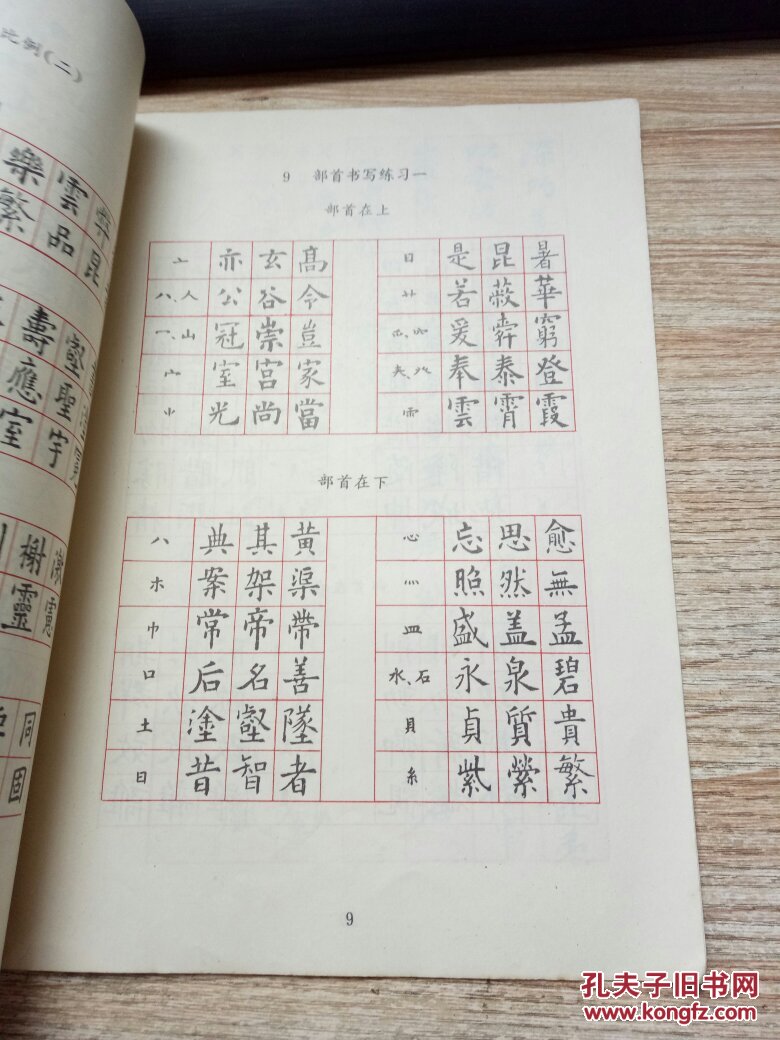 比例(二)
樂雲弊
繁品昆
壽壑
應聖
室宇
榭激
靈憲
同
固
9 部首书写练习一
部首在上
亠 亦玄高 日 是昆暑
八、人 公谷令 艹 若蔽華
冖、山 冠崇豈 爫、穴 爰舜窮
宀 室宫家 𡗗、癶 奉泰登
⺌ 光尚當 雨 雲霄霞
部首在下
八 典其黄 心 忘思愈
木 案架渠 灬 照然無
巾 常帝帶 皿 盛盖孟
口 后名善 水、石 永泉碧
土 塗壑墜 貝 貞質貴
日 昔智者 糸 紫縈繁
9
孔夫子旧书网
www.kongfz.com